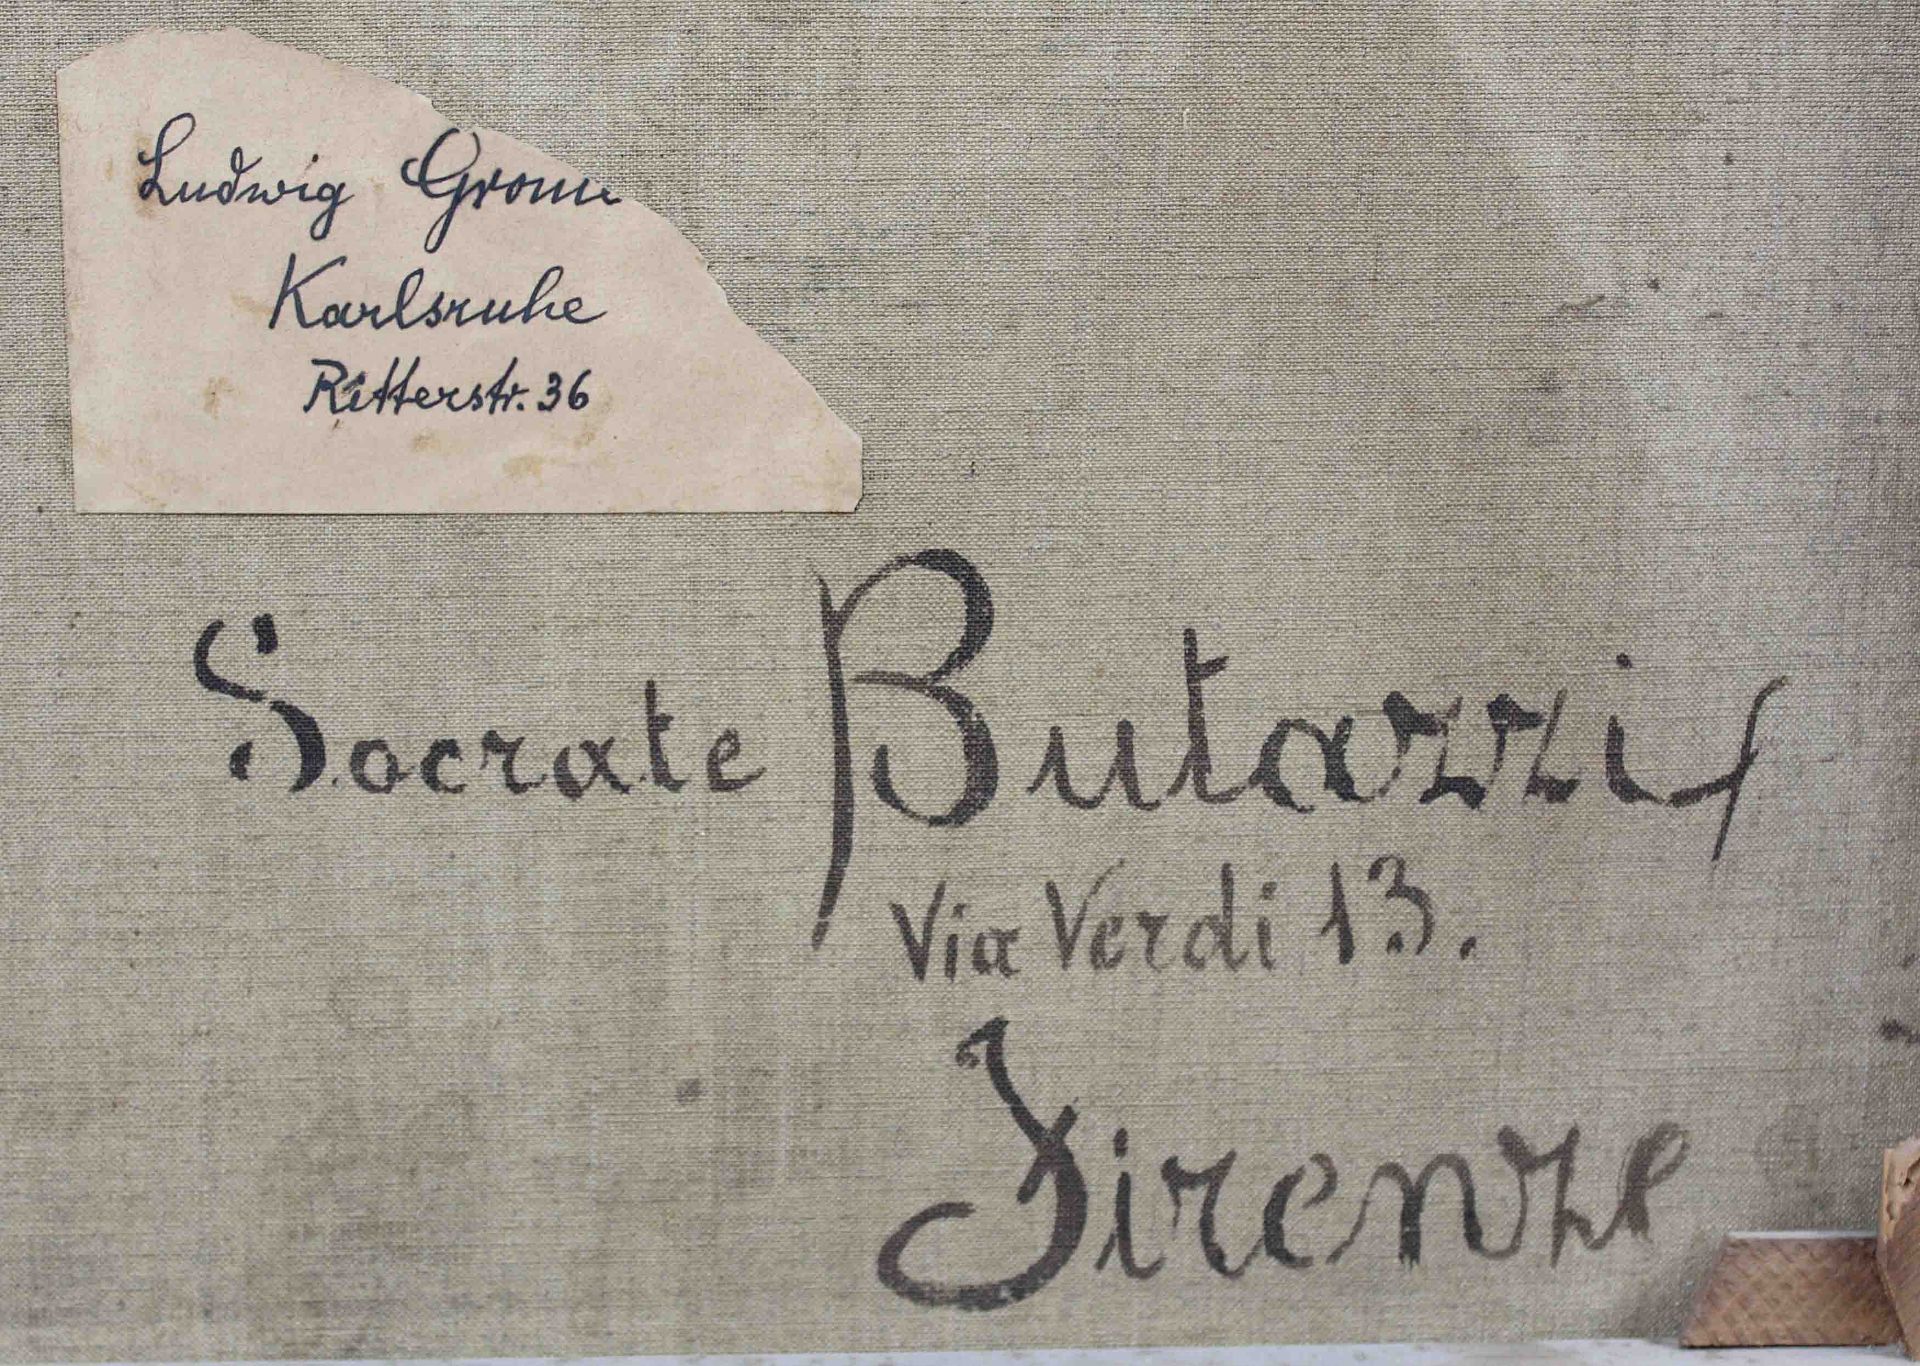 Ludwig
Karlsruhe
Ritterstr. 36
Socrate Butazzi
Via Verdi 13.
Firenze